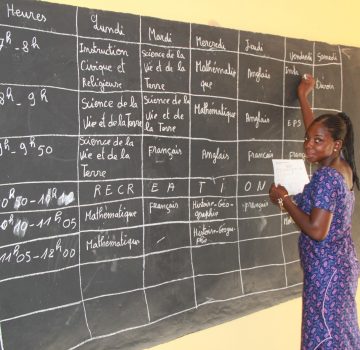 Heures Lundi Mardi Mercredi Jeudi Vendredi Samedi
7h-8h
Instruction
Civique et
Religieuse
Science de la
Vie et de la
Terre
Mathémati
que
Anglais
Devoir
8h-9h
Science de la
Vie et de la Terre
Science de la
Vie et de la
Terre
Mathématique
Anglais
EPS
9h-9h50
Science de la
Vie et de la
Terre
Français
Anglais
Français
français
RECREATION
Mathématique
français
Histoire-Géo-
graphie
français
11h05-12h00
Mathématique
-